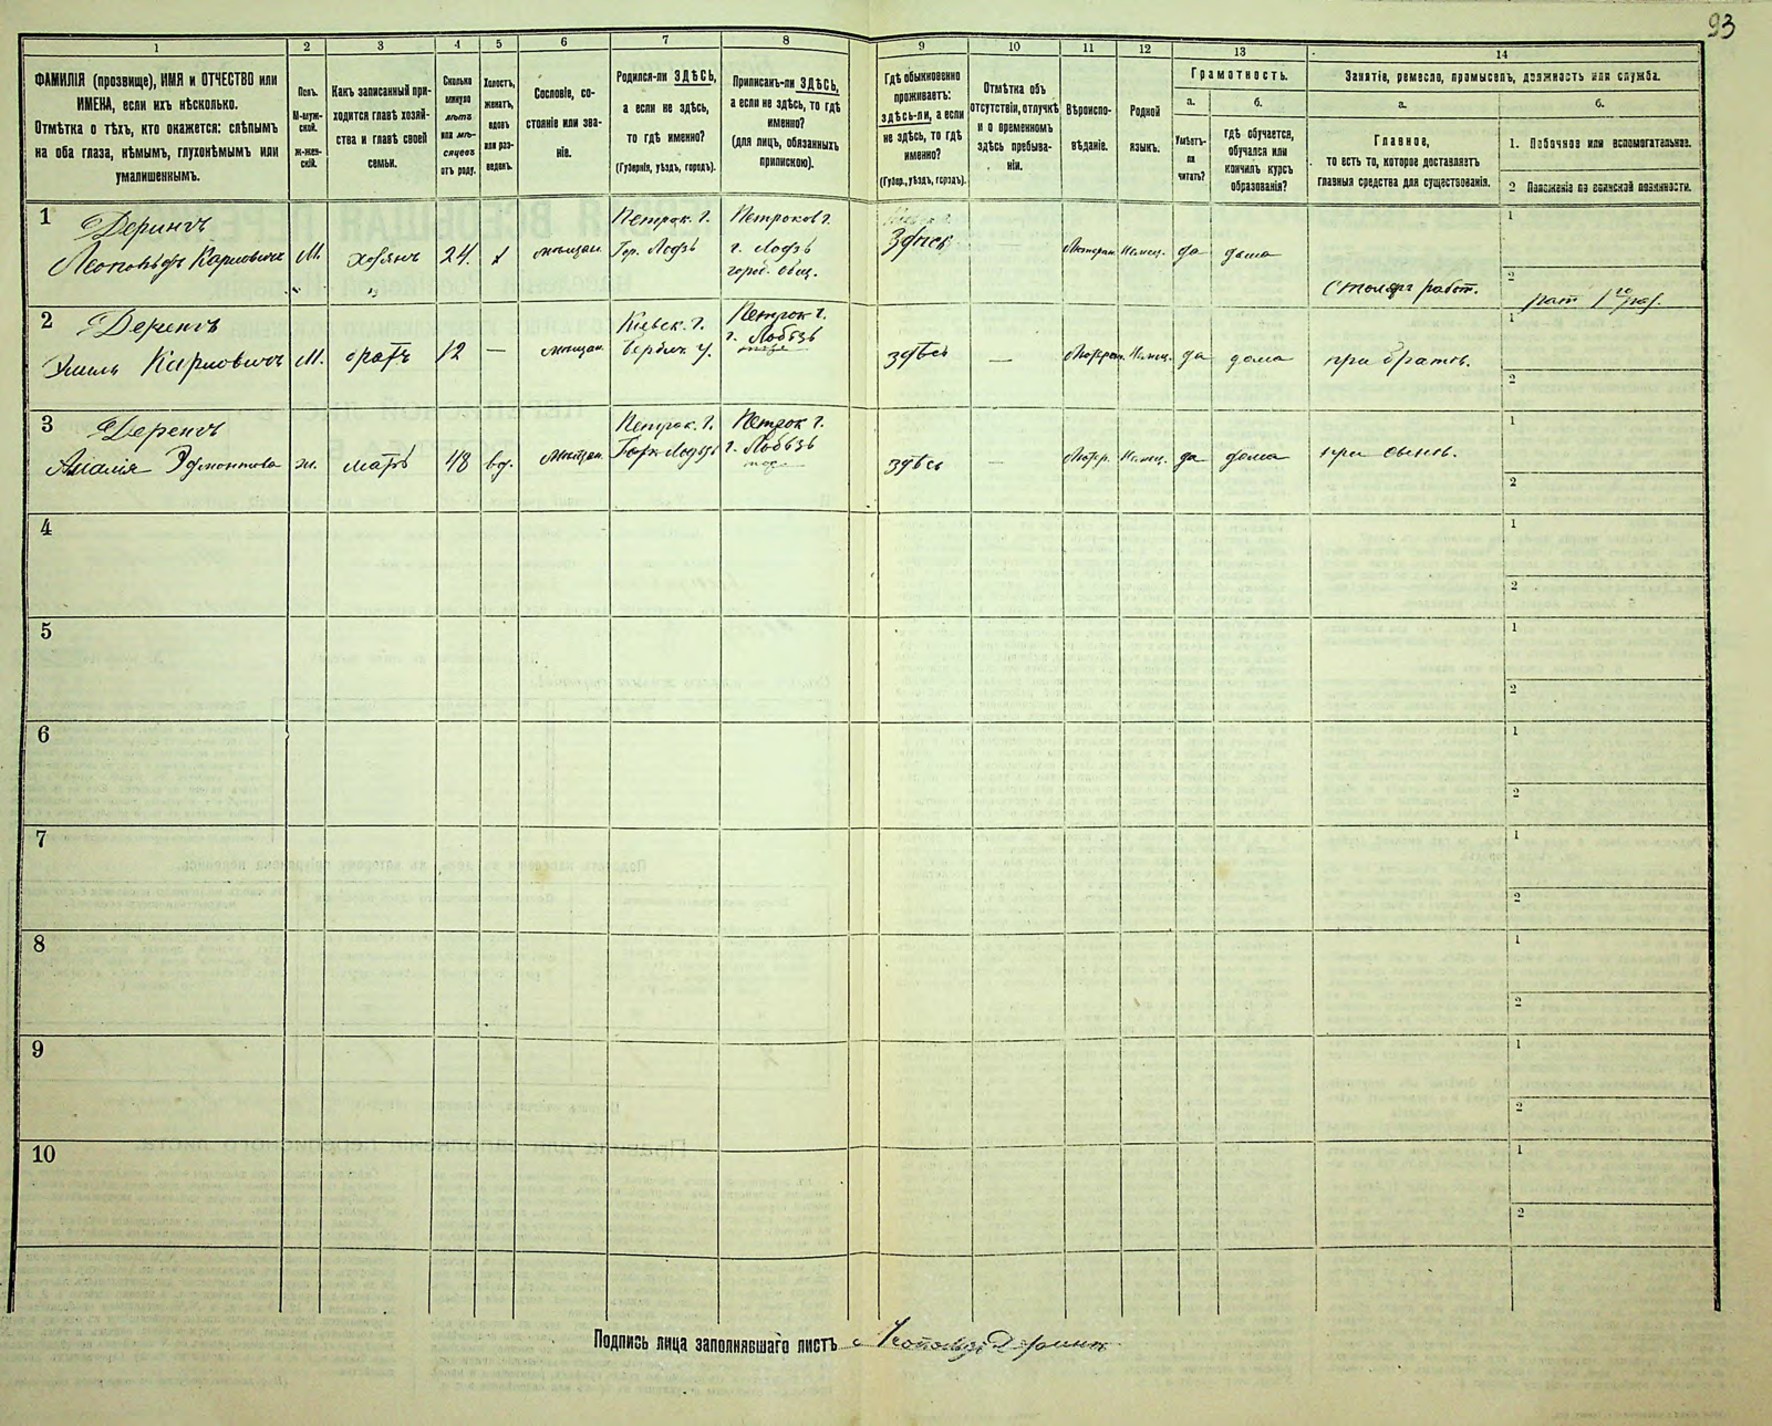 93
1
2
3
4
5
6
7
8
9
10
11
12
13
14
ФАМИЛІЯ (прозвище), ИМЯ и ОТЧЕСТВО или
ИМЕНА, если ихъ нѣсколько.
Отмѣтка о тѣхъ, кто окажется: слѣпымъ
на оба глаза, нѣмымъ, глухонѣмымъ или
умалишеннымъ.
Полъ.
М-муж-
ской.
ж-жен-
скій.
Какъ записанный при-
ходится главѣ хозяй-
ства и главѣ своей
семьи.
Сколько
минуло
лѣтъ
или мѣ-
сяцевъ
отъ роду.
Холостъ,
женатъ,
вдовъ
или раз-
веденъ.
Сословіе, со-
стояніе или зва-
ніе.
Родился-ли ЗДѢСЬ,
а если не здѣсь,
то гдѣ именно?
(Губернія, уѣздъ, городъ).
Приписанъ-ли ЗДѢСЬ,
а если не здѣсь, то гдѣ
именно?
(для лицъ, обязанныхъ
припискою).
Гдѣ обыкновенно
проживаетъ:
здѣсь-ли, а если
не здѣсь, то гдѣ
именно?
(Губер., уѣздъ, городъ).
Отмѣтка объ
отсутствіи, отлучкѣ
и о временномъ
здѣсь пребыва-
ніи.
Вѣроиспо-
вѣданіе.
Родной
языкъ.
Грамотность.
а.
Умѣетъ-
ли
читать?
б.
гдѣ обучается,
обучался или
кончилъ курсъ
образованія?
Занятіе, ремесло, промыселъ, должность или служба.
а.
Главное,
то есть то, которое доставляетъ
главныя средства для существованія.
б.
1. Побочное или вспомогательное.
2 Положеніе по воинской повинности.
1
Дерингъ
Леопольдъ Карловичъ
М.
хозяинъ
24.
х
мѣщан.
Петрок. г.
Гор. Лодзь
Петроков г.
г. Лодзь
город. общ.
Здѣсь
Лютеран.
Немец.
да
дома
Столяръ работ.
1
2
рат. 1го раз.
2
Дерингъ
Эмиль Карловичъ
М.
братъ
12
—
мѣщан.
Кіевск. г.
Бердич. у.
Петрок г.
г. Лодзь
здѣсь
—
Лютеран.
Немец.
да
дома
при братѣ.
1
2
3
Дерингъ
Амалія Эдмонтова
ж.
мать
48
вд.
мѣщан.
Петрок. г.
Петрок г.
г. Лодзь
здѣсь
—
Лютер.
Немец.
да
дома
при сынѣ.
1
2
4
1
2
5
1
2
6
1
2
7
1
2
8
1
2
9
1
2
10
1
2
Подпись лица заполнявшаго листъ Леопольдъ Дерингъ